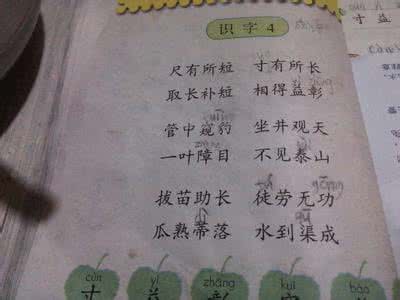 识字4
尺有所短 寸有所长
取长补短 相得益彰
管中窥豹 坐井观天
一叶障目 不见泰山
拔苗助长 徒劳无功
瓜熟蒂落 水到渠成
cùn yì zhāng kuī bào
寸 益 彰 窥